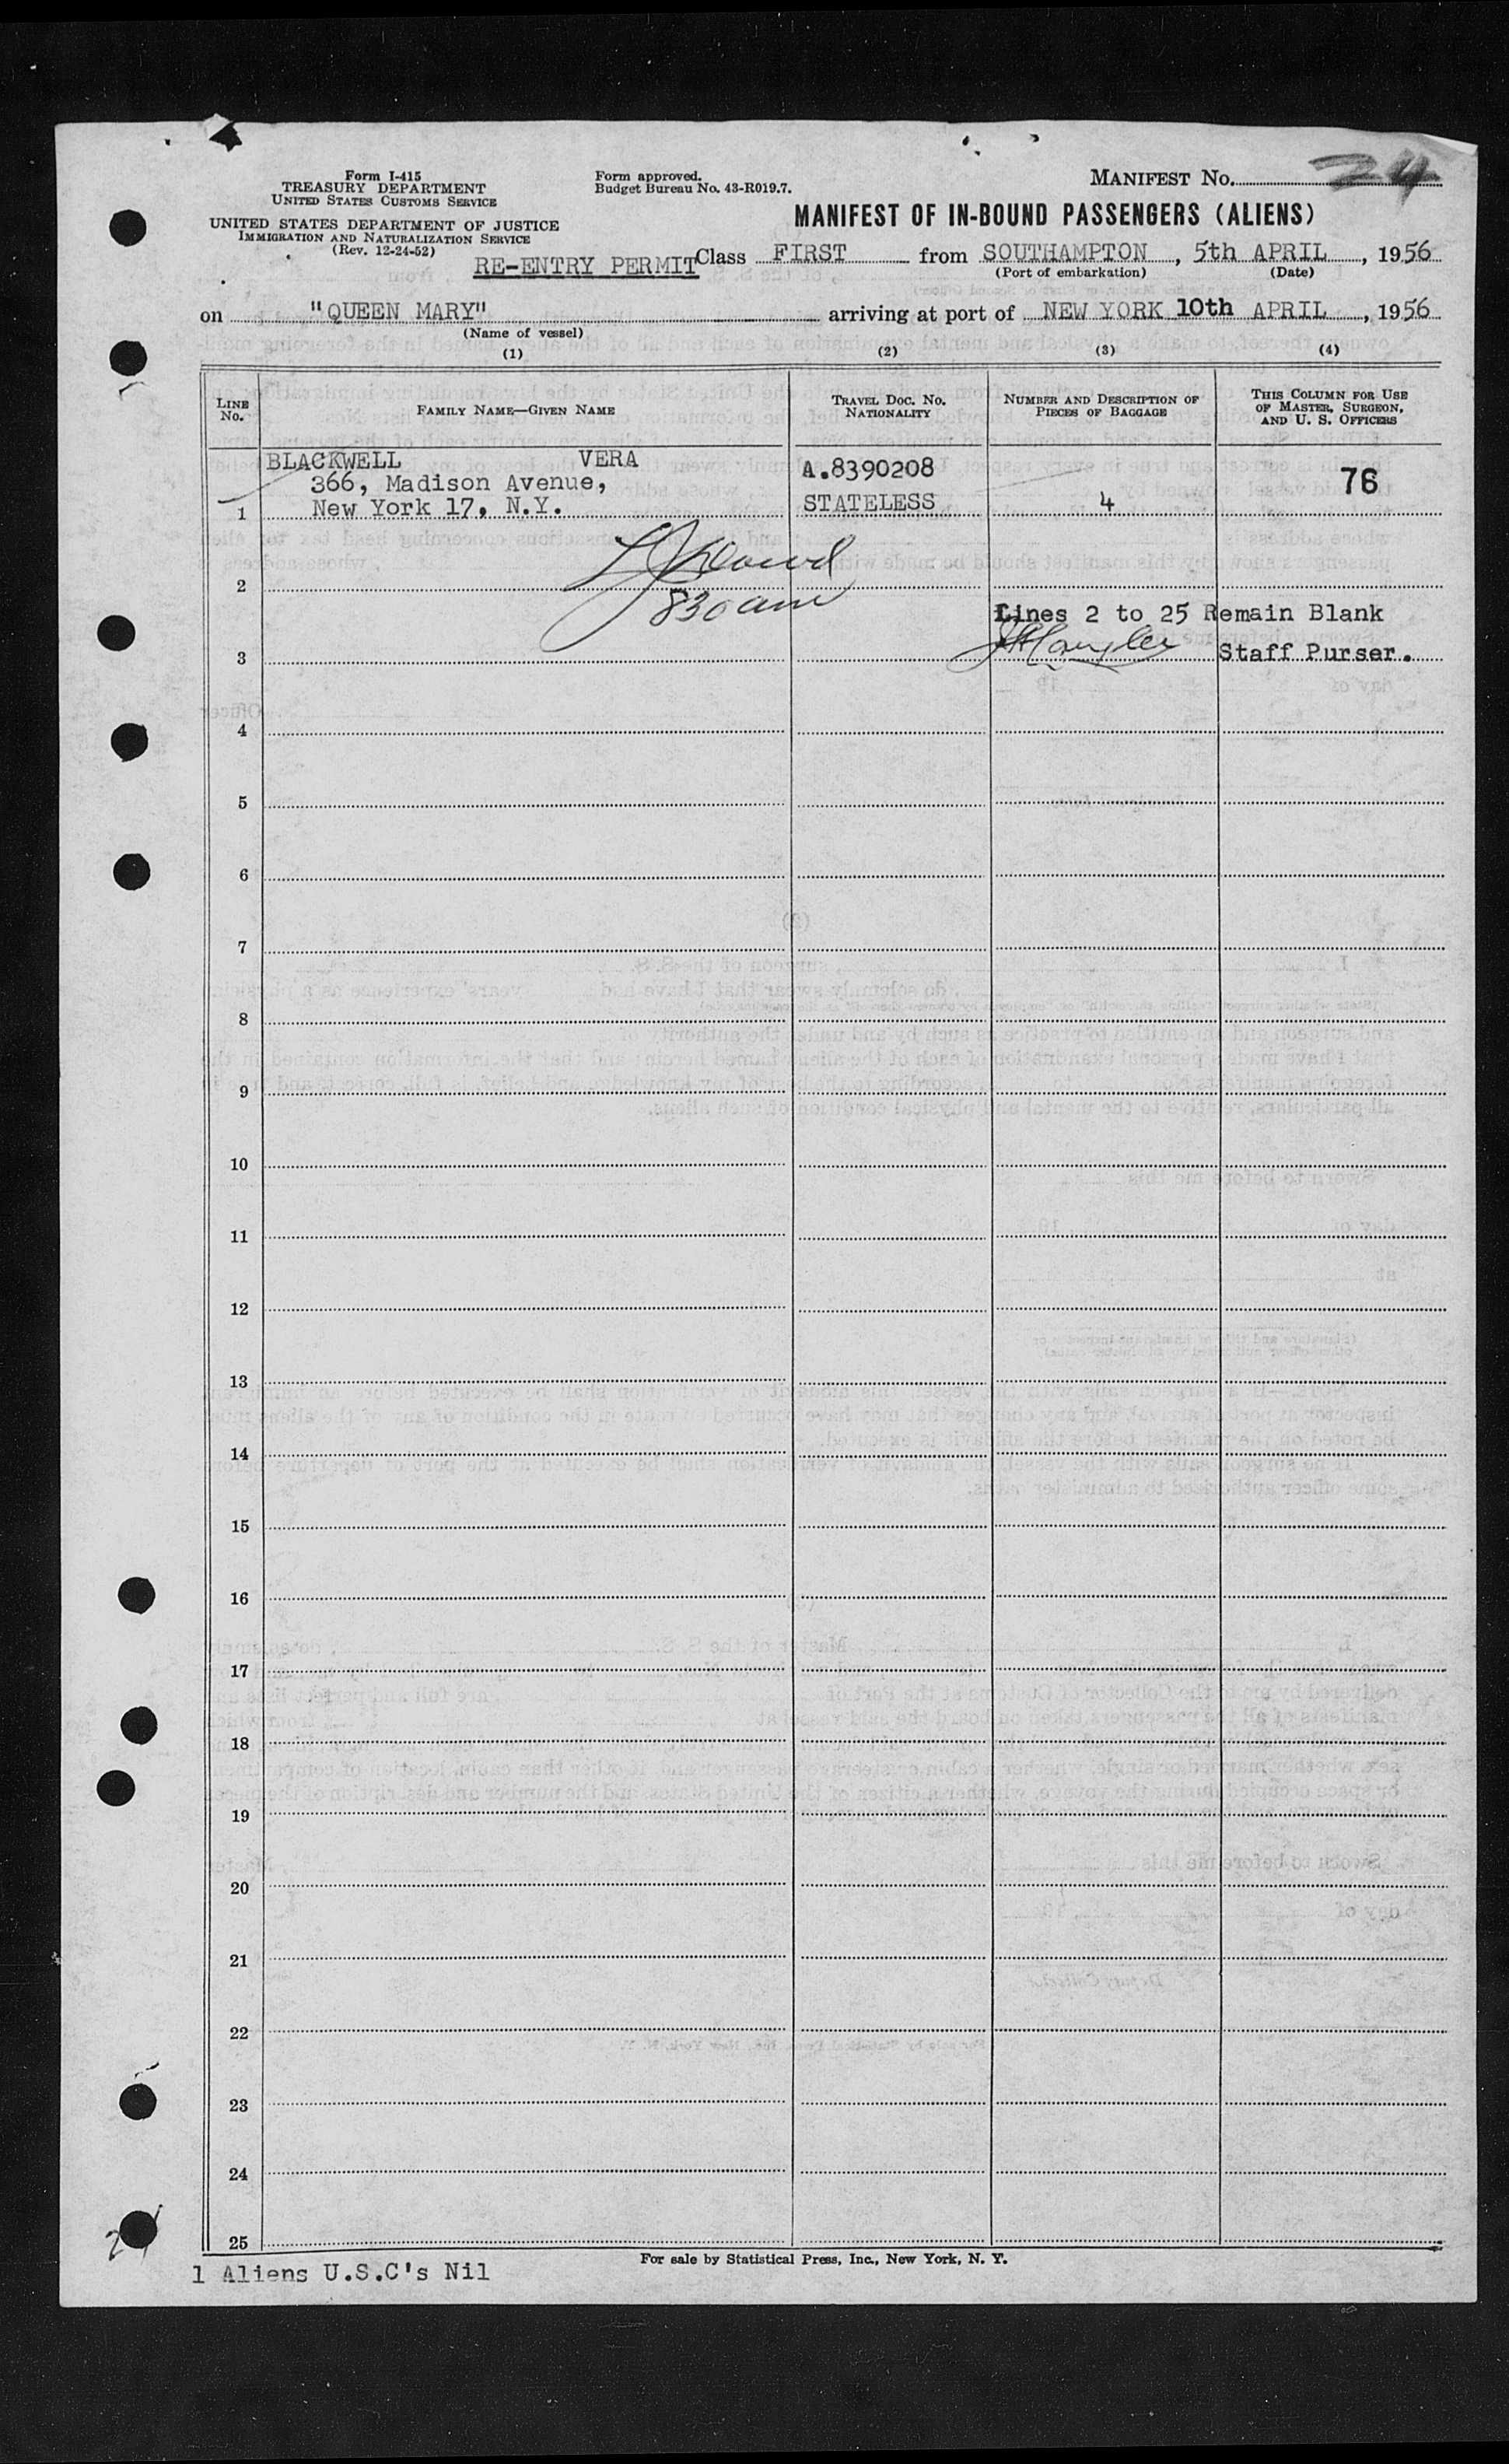 Form I-415
TREASURY DEPARTMENT
UNITED STATES CUSTOMS SERVICE
UNITED STATES DEPARTMENT OF JUSTICE
IMMIGRATION AND NATURALIZATION SERVICE
(Rev. 12-24-52)
Form approved.
Budget Bureau No. 43-R019.7.
MANIFEST NO. 24
MANIFEST OF IN-BOUND PASSENGERS (ALIENS)
RE-ENTRY PERMIT Class FIRST from SOUTHAMPTON, 5th APRIL, 1956
(Port of embarkation) (Date)
on "QUEEN MARY" arriving at port of NEW YORK 10th APRIL, 1956
(Name of vessel)
(1) (2) (3) (4)
LINE NO. FAMILY NAME—GIVEN NAME TRAVEL DOC. NO. NATIONALITY NUMBER AND DESCRIPTION OF PIECES OF BAGGAGE THIS COLUMN FOR USE OF MASTER, SURGEON, AND U. S. OFFICERS
BLACKWELL VERA A.8390208
366, Madison Avenue, 76
1 New York 17, N.Y. STATELESS 4
2
830 am
Lines 2 to 25 Remain Blank
3 Staff Purser.
4
5
6
7
8
9
10
11
12
13
14
15
16
17
18
19
20
21
22
23
24
25
For sale by Statistical Press, Inc., New York, N. Y.
1 Aliens U.S.C's Nil